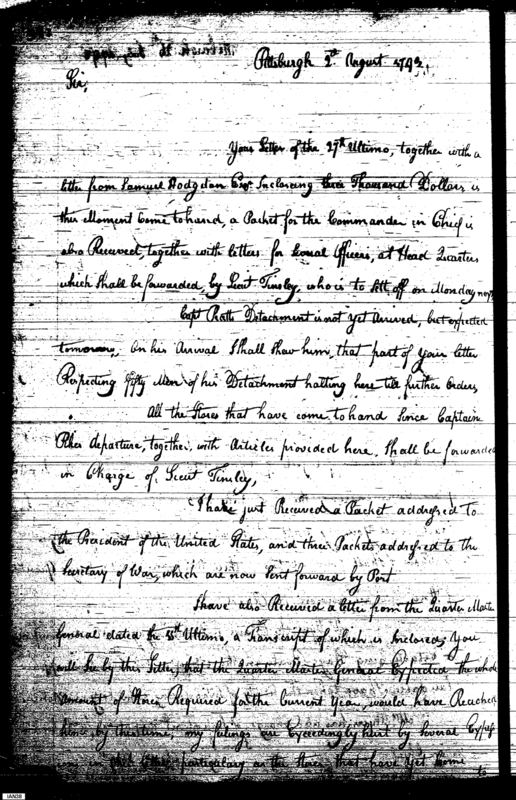 Pittsburgh 2d August 1793,
Sir,
Your Letter of the 27th Ultimo, together with a
letter from Samuel Hodgdon Esqr. Inclosing three Thousand Dollars is
this Moment Come to hand, a Packet for the Commander in Chief is
also Received, together with letters for Several Officers, at Head Quarters
which Shall be forwarded, by Lieut Tinsley, who is to Sett off on Monday
Capt Detachment is not yet Arrived, but expected
tomorrow, On his Arrival I Shall Shaw him, that part of your letter
Respecting fifty Men of his Detachment halting here till further Orders,
All the Stores that have come to hand Since Captain
departure, together, with Articles provided here, Shall be forwarded
in Charge of Lieut Tinsley,
I have just Received a Packet addressed To
the President of the United States, and three Packets addressed to the
Secretary of War, which are now Sent forward by Post
I have also Received a letter from the Quarter Master
General dated the Ultimo, a Transcript of which is Inclosed, You
will See by this Letter, that the Quarter Master General Expected the whole
amount of Stores Required for the Current Year, would have Reached
here by this time, my feelings are Exceedingly hurt by Several
in this letter, particulary as the Stores that have Yet Come
to
IAN38